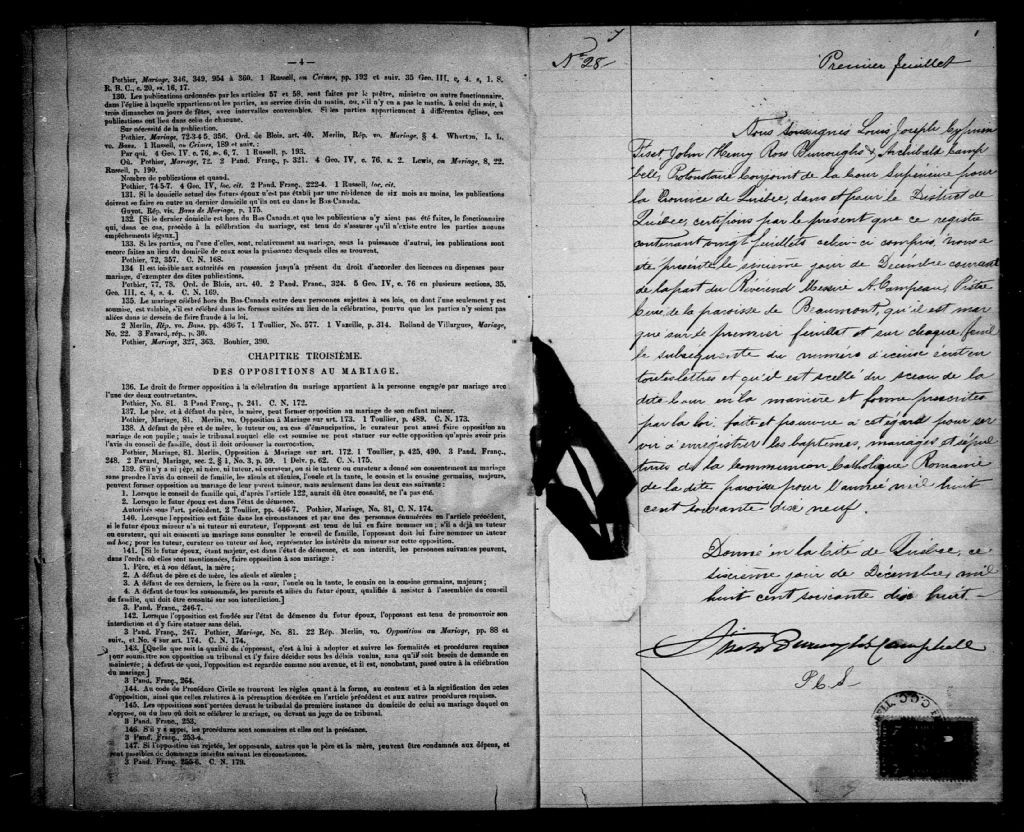 — 4 —
Pothier, Mariage, 346, 349, 954 à 360. 1 Russell, on Crimes, pp. 192 et suiv. 35 Geo. III, c, 4. s, 1. S.
R. B. C., c. 20, ss. 16, 17.
130. Les publications ordonnées par les articles 57 et 58, sont faites par le prêtre, ministre ou autre fonctionnaire,
dans l'église à laquelle appartiennent les parties, au service divin du matin, ou, s'il n'y en a pas le matin, à celui du soir, à
trois dimanches ou jours de fêtes, avec intervalles convenables. Si les parties appartiennent à différentes églises, ces
publications ont lieu dans celle de chacune.
Sur nécessité de la publication.
Pothier, Mariage, 72-3-4-5, 356. Ord. de Blois, art. 40. Merlin, Rép. vo. Mariage, § 4. Wharton, L. L.
vo. Bans. 1 Russell, on Crimes, 189 et suiv. :
Par qui. 4 Geo. IV. c. 76, ss. 6, 7. 1 Russell, p. 193.
Où. Pothier, Mariage, 72. 2 Pand. Franç., p. 321. 4 Geo. IV, c. 76, s. 2. Lewis, on Mariage, 8, 22.
Russell, p. 190.
Nombre de publications et quand.
Pothier, 74-5-7. 4 Geo. IV, loc. cit. 2 Pand. Franç., 222-4. 1 Russell, loc. cit.
131. Si le domicile actuel des futurs époux n'est pas établi par une résidence de six mois au moins, les publications
doivent se faire en outre au dernier domicile qu'ils ont eu dans le Bas-Canada.
Guyot, Rép. vis. Bans de Mariage, p. 175.
132. [Si le dernier domicile est hors du Bas-Canada et que les publications n'y aient pas été faites, le fonctionnaire
qui, dans ce cas, procède à la célébration du mariage, est tenu de s'assurer qu'il n'existe entre les parties aucuns
empêchements légaux.]
133. Si les parties, ou l'une d'elles, sont, relativement au mariage, sous la puissance d'autrui, les publications sont
encore faites au lieu du domicile de ceux sous la puissance desquels elles se trouvent.
Pothier, 72, 357. C. N. 168.
134 Il est loisible aux autorités en possession jusqu'à présent du droit d'accorder des licences ou dispenses pour
mariage, d'exempter des dites publications.
Pothier, 77, 78. Ord. de Blois, art. 40. 2 Pand. Franç., 324. 5 Geo. IV, c. 76 en plusieurs sections, 35.
Geo. III, c. 4, s. 4. C. N. 169.
135. Le mariage célébré hors du Bas-Canada entre deux personnes sujettes à ses lois, ou dont l'une seulement y est
soumise, est valable, s'il est célébré dans les formes usitées au lieu de la célébration, pourvu que les parties n'y soient pas
allées dans le dessein de faire fraude à la loi.
2 Merlin, Rép. vo. Bans, pp. 436-7. 1 Toullier, No. 577. 1 Vazeille, p. 314. Rolland de Villargues, Mariage,
No. 22. 3 Favard, rép., p. 30.
Pothier, Mariage, 327, 363. Bouhier, 390.
CHAPITRE TROISIÈME.
DES OPPOSITIONS AU MARIAGE.
136. Le droit de former opposition à la célébration du mariage appartient à la personne engagée par mariage avec
l'une des deux contractantes.
Pothier, No. 81. 3 Pand Franç., p. 241. C. N. 172.
137. Le père, et à défaut du père, la mère, peut former opposition au mariage de son enfant mineur.
Pothier, Mariage, 81. Merlin, vo. Opposition à Mariage sur art. 173. 1 Toullier, p. 489. C. N. 173.
138. A défaut de père et de mère, le tuteur ou, au cas d'émancipation, le curateur peut aussi faire opposition au
mariage de son pupile ; mais le tribunal auquel elle est soumise ne peut statuer sur cette opposition qu'après avoir pris
l'avis du conseil de famille, dont il doit ordonner la convocation.
Pothier, Mariage, 81. Merlin, Opposition à Mariage sur art. 172. 1 Toullier, p. 425, 490. 3 Pand. Franç.,
248. 2 Favard, Mariage, sec. 2. § i, No. 3, p. 59. 1 Delv. p. 62. C. N. 175.
139. S'il n'y a ni père, ni mère, ni tuteur, ni curateur, ou si le tuteur ou curateur a donné son consentement au mariage
sans prendre l'avis du conseil de famille, les aïeuls et aïeules, l'oncle et la tante, le cousin et la cousine germains, majeurs,
peuvent former opposition au mariage de leur parent mineur, mais seulement dans les deux cas suivants :
1. Lorsque le conseil de famille qui, d'après l'article 122, aurait dû être consulté, ne l'a pas été.
2. Lorsque le futur époux est dans l'état de démence.
Autorités sous l'art. précédent. 2 Toullier, pp. 446-7. Pothier, Mariage, No. 81, C. N. 174.
140. Lorsque l'opposition est faite dans les circonstances et par une des personnes énumérées en l'article précédent,
si le futur époux mineur n'a ni tuteur ni curateur, l'opposant est tenu de lui en faire nommer un ; s'il a déjà un tuteur
ou curateur, qui ait consenti au mariage sans consulter le conseil de famille, l'opposant doit lui faire nommer un tuteur
ad hoc ; pour les tuteur, curateur ou tuteur ad hoc, représenter les intérêts du mineur sur cette opposition.
141. [Si le futur époux, étant majeur, est dans l'état de démence, et non interdit, les personnes suivantes peuvent,
dans l'ordre où elles sont mentionnées, faire opposition à son mariage :
1. Père, et à son défaut, la mère ;
2. A défaut de père et de mère, les aïeuls et aïeules ;
3. A défaut de ces derniers, le frère ou la sœur, l'oncle ou la tante, le cousin ou la cousine germains, majeurs ;
4. A défaut de tous les susnommés, les parents et alliés du futur époux, qualifiés à assister à l'assemblée du conseil
de famille, qui doit être consulté sur son interdiction.]
3 Pand. Franç., 246-7.
142. Lorsque l'opposition est fondée sur l'état de démence du futur époux, l'opposant est tenu de promouvoir son
interdiction et d'y faire statuer sans délai.
3 Pand. Franç., 247. Pothier, Mariage, No. 81. 22 Rép. Merlin, vo. Opposition au Mariage, pp. 88 et
suiv., et No. 4 sur art. 174. C. N. 174.
143. [Quelle que soit la qualité de l'opposant, c'est à lui à adopter et suivre les formalités et procédures requises
pour soumettre son opposition au tribunal et l'y faire décider sous les délais voulus, sans qu'il soit besoin de demande en
mainlevée ; à défaut de quoi, l'opposition est regardée comme non avenue, et il est, nonobstant, passé outre à la célébration
du mariage.]
3 Pand. Franç., 264.
144. Au code de Procédure Civile se trouvent les règles quant à la forme, au contenu et à la signification des actes
d'opposition, ainsi que celles relatives à la péremption décrétée en l'article précédent et aux autres procédures requises.
145. Les oppositions sont portées devant le tribunal de première instance du domicile de celui au mariage duquel on
s'oppose, ou du lieu où doit se célébrer le mariage, ou devant un juge de ce tribunal.
3 Pand. Franç., 253.
146. S'il y a appel, les procédures sont sommaires et elles ont la préséance.
3 Pand. Franç., 253-4.
147. Si l'opposition est rejetée, les opposants, autres que le père et la mère, peuvent être condamnés aux dépens, et
sont passibles de dommages intérêts suivant les circonstances.
3 Pand. Franç., 255-6. C. N. 179.
No 28
Premier feuillet
Nous soussignés Louis Joseph Cyprien
Fiset John Henry Ross Burroughs & Archibald Camp
bell, Protonotaire Conjoint de la Cour Supérieure pour
la Province de Québec, dans et pour le District de
Québec, certifions par le présent que ce registre
contenant vingt feuillets celui-ci compris, nous a
été présenté le sixième jour de Décembre courant
de la part du Révérend Messire A. Campeau, Prêtre
Curé, de la paroisse de Beaumont, qu'il est mar
qué sur le premier feuillet et sur chaque feuil
let subséquent du numéro d'icelui écrit en
toutes lettres et qu'il est scellé du sceau de la
dite Cour en la manière et forme prescrites
par la loi, faite et pourvue à cet égard pour ser
vir à enregistrer les baptêmes, mariages et sépul
tures de la Communion Catholique Romaine
de la dite paroisse pour l'année mil huit
cent soixante dix neuf.
Donné en la Cité de Québec, ce
sixième jour de Décembre, mil
huit cent soixante dix huit —
Fiset Burroughs Campbell
P. C. S.